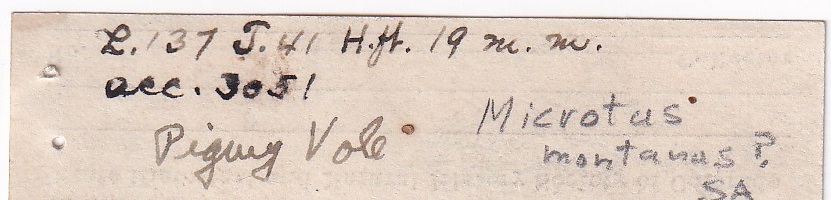 L. 137 T. 41 H.ft. 19 m.m.
acc. 3051
Pigmy Vole
Microtus
montanus?
SA